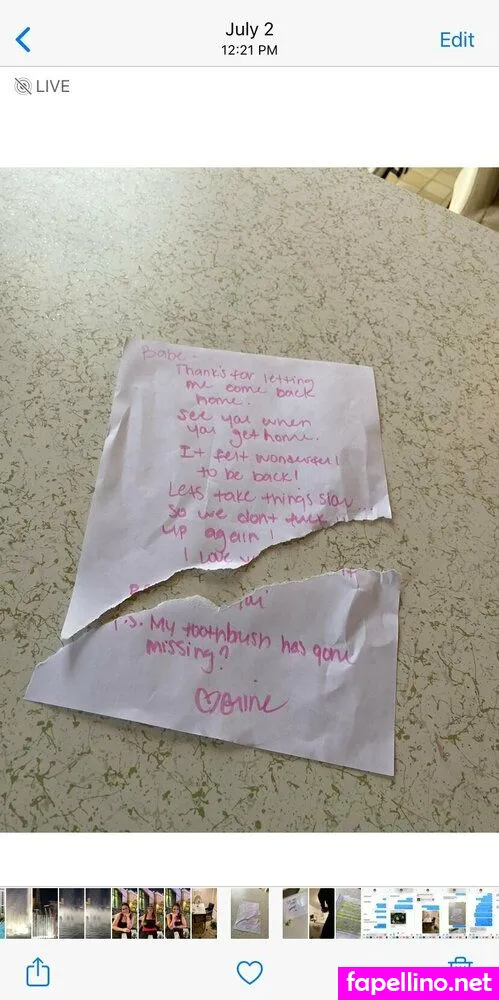 July 2
12:21 PM
Edit
LIVE
Babe -
Thanks for letting
me come back
home.
See you when
you get home.
It felt wonderful
to be back!
Lets take things slow
So we dont fuck
up again!
I love
P.S. My toothbush has gone
missing?
fapellino.net